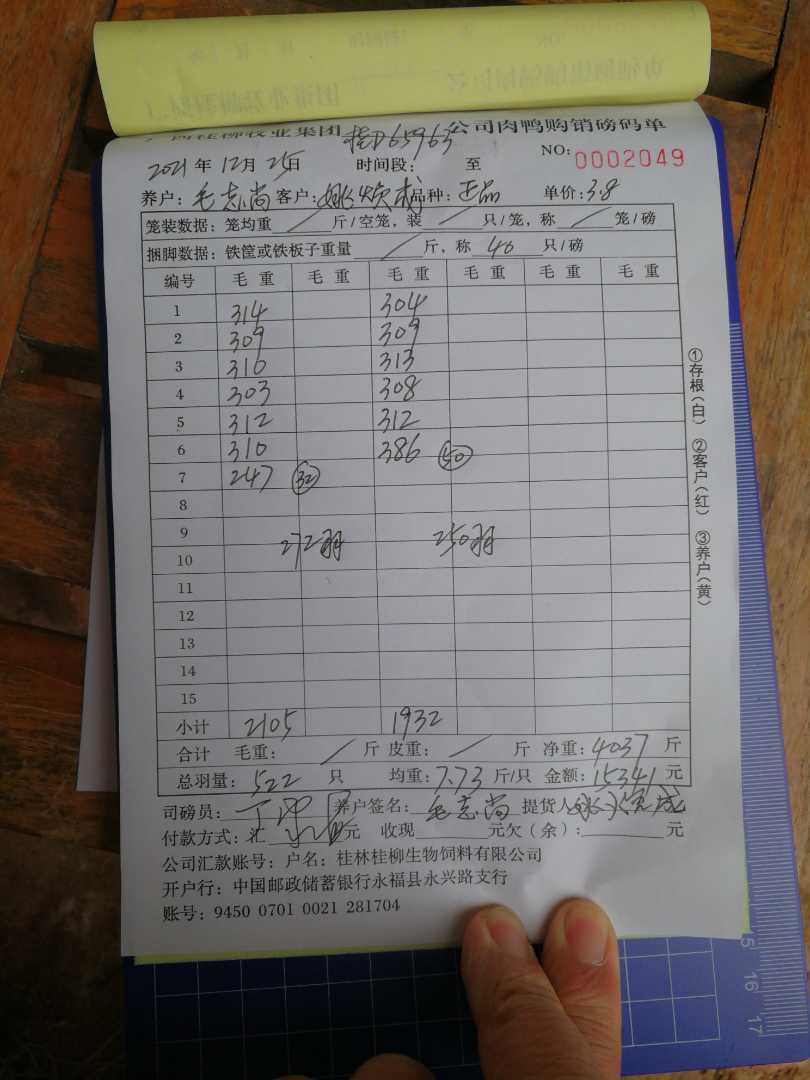 桂柳牧业集团 桂D65963 公司肉鸭购销磅码单
2021年 12月 25日 时间段： 至 NO: 0002049
养户：毛志尚 客户： 品种：正品 单价：3.8
笼装数据：笼均重 / 斤/空笼，装 / 只/笼，称 / 笼/磅
捆脚数据：铁筐或铁板子重量 / 斤，称 40 只/磅
编号 毛重 毛重 毛重 毛重 毛重 毛重
1 314 304
2 309 309
3 310 313
4 303 308
5 312 312
6 310 386 50
7 247 32
8
9
272羽 250羽
10
11
12
13
14
15
小计 2105 1932
合计 毛重： / 斤 皮重： / 斤 净重：4037 斤
总羽量：522 只 均重：7.73 斤/只 金额：15341 元
司磅员： 养户签名：毛志尚 提货人
付款方式：汇 元 收现 元欠（余）： 元
公司汇款账号：户名：桂林桂柳生物饲料有限公司
开户行：中国邮政储蓄银行永福县永兴路支行
账号：9450 0701 0021 281704
①存根（白） ②客户（红） ③养户（黄）
15 16 17